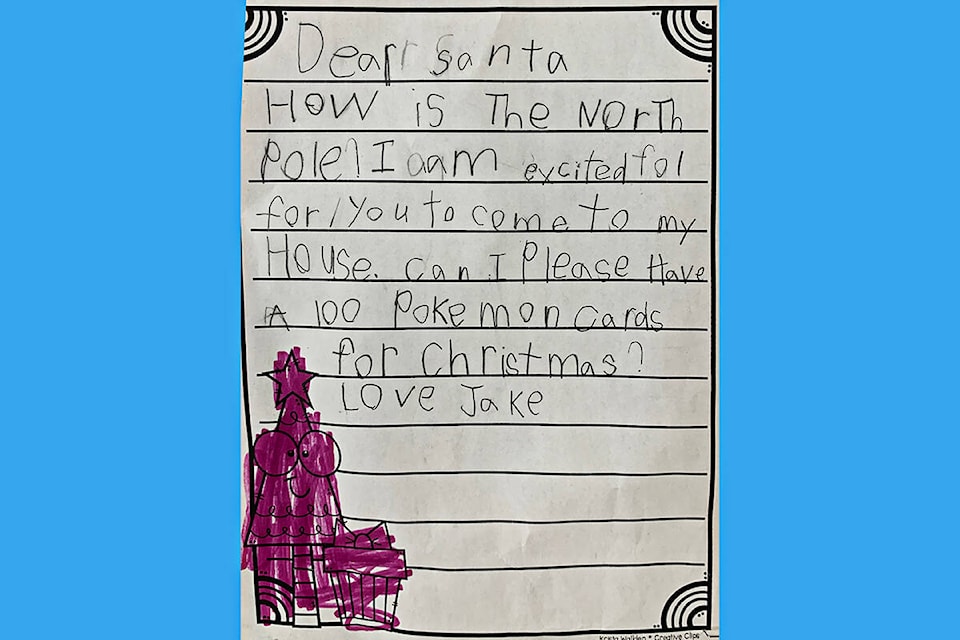 Dear Santa
HOW is The NorTh
Pole? I aam excited fol
for you to come to my
House. can I Please Have
A 100 Pokemon cards
for Christmas?
LOVE Jake
Krista Wallden • Creative Clips